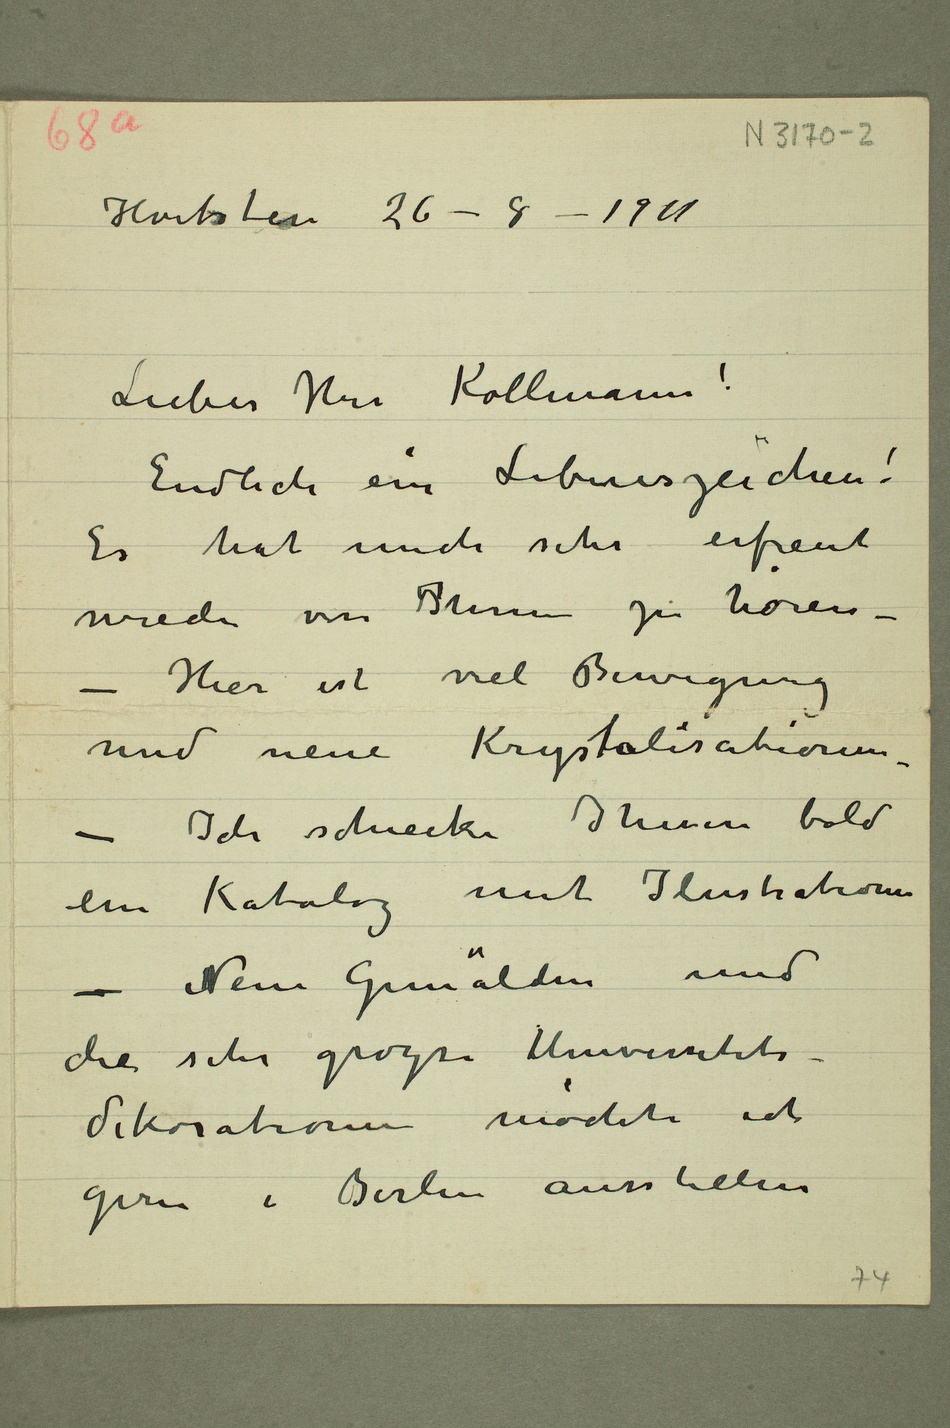 68a
N 3170-2
Hvitsten 26 – 8 – 1911
Lieber Herr Kollmann!
Endlich ein Lebenszeichen!
Es hat mich sehr erfreut
wieder von Ihnen zu hören –
– Hier ist viel Bewegung
und neue Krystalisationen –
– Ich schicke Ihnen bald
ein Katalog mit Ilustrationen
– Neue Gemälden und
die sehr grozse Universitets-
dekorationen möchte ich
gern i Berlin ausstellen
74